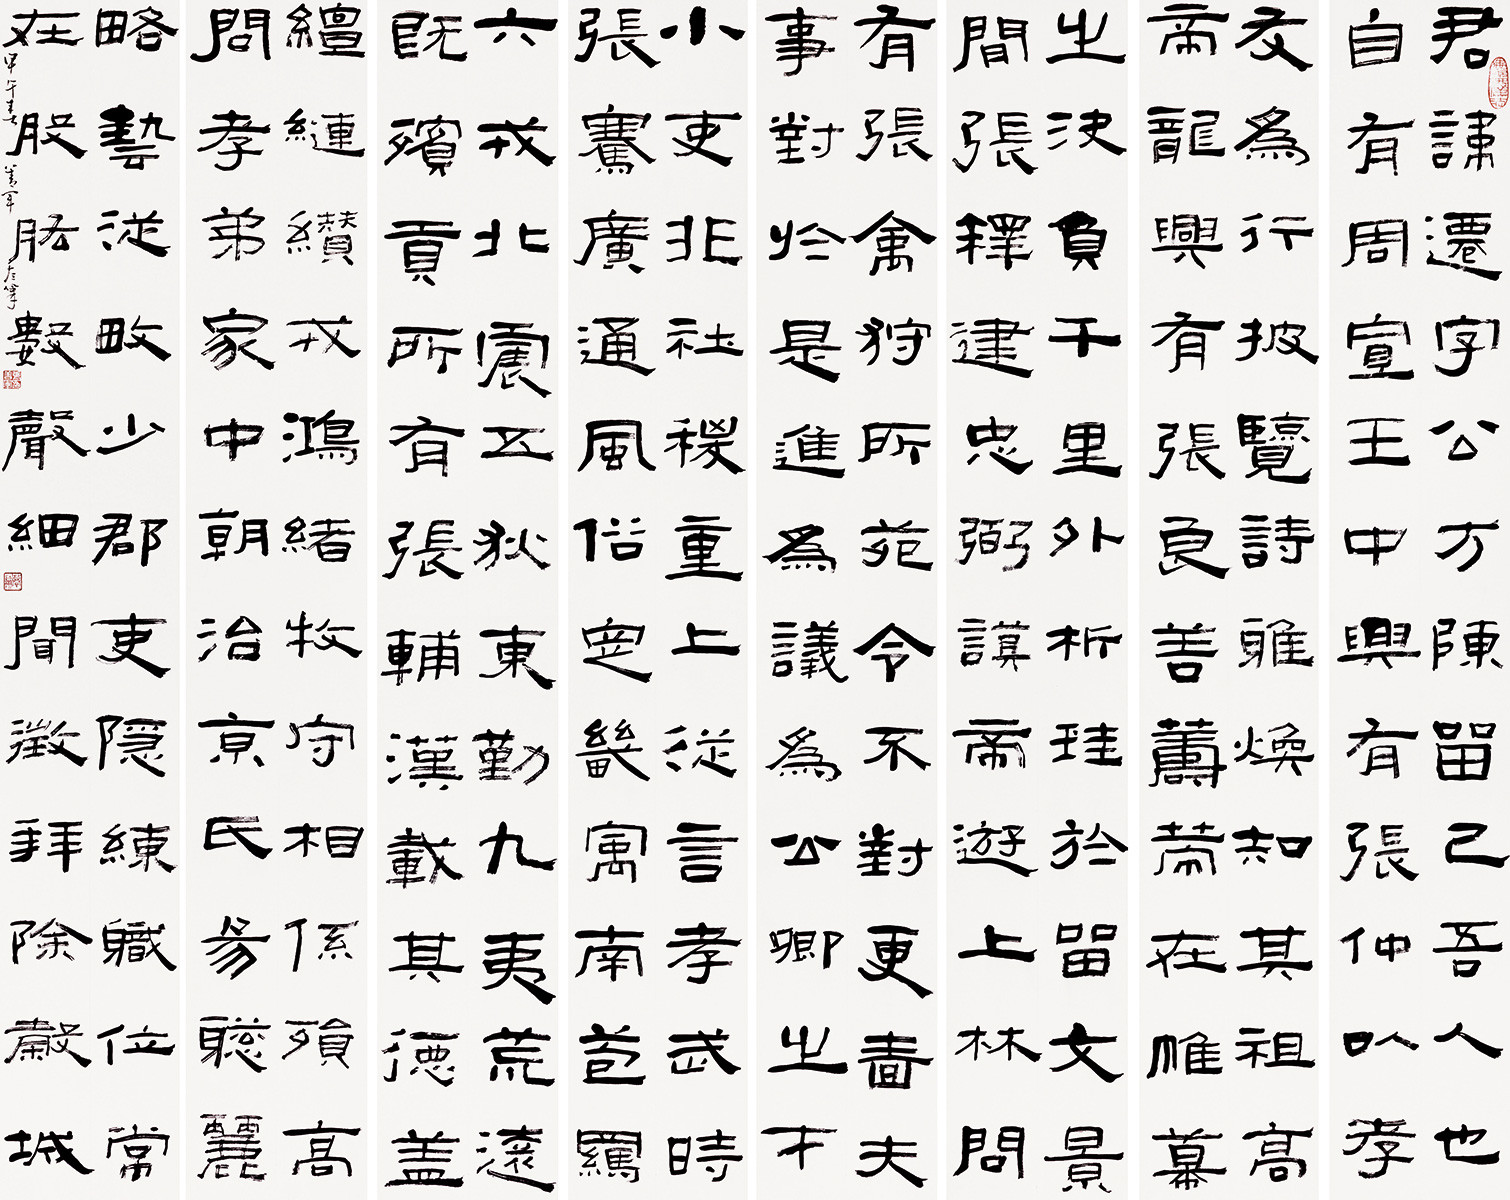 君諱遷字公方陳留己吾人也
自有周宣王中興有張仲㕥孝
友為行披覽詩雅煥知其祖高
帝龍興有張良善蓄篅在帷幕
之決負千里外析珪於留文景
間張釋建忠弼謨帝遊上林問
有張禽狩所苑令不對更嗇夫
事對於是進為議為公卿之才
小吏非社稷重上從言孝武時
張騫廣通風俗定畿寓南苞羈
六戎北震五狄東勤九夷荒遠
既殯貢所有張輔漢載其德蓋
纏縺纘戎鴻緒牧守相係殞高
問孝弟家中朝治京氏易聰麗
略藝從畋少郡吏隱練職位常
在股肱數聲細聞徵拜除縠城